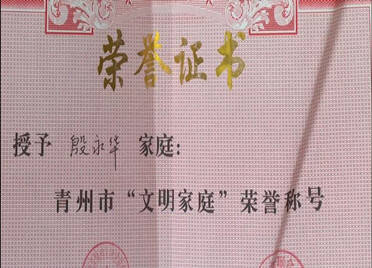 荣誉证书
授予 殷永华 家庭:
青州市“文明家庭”荣誉称号